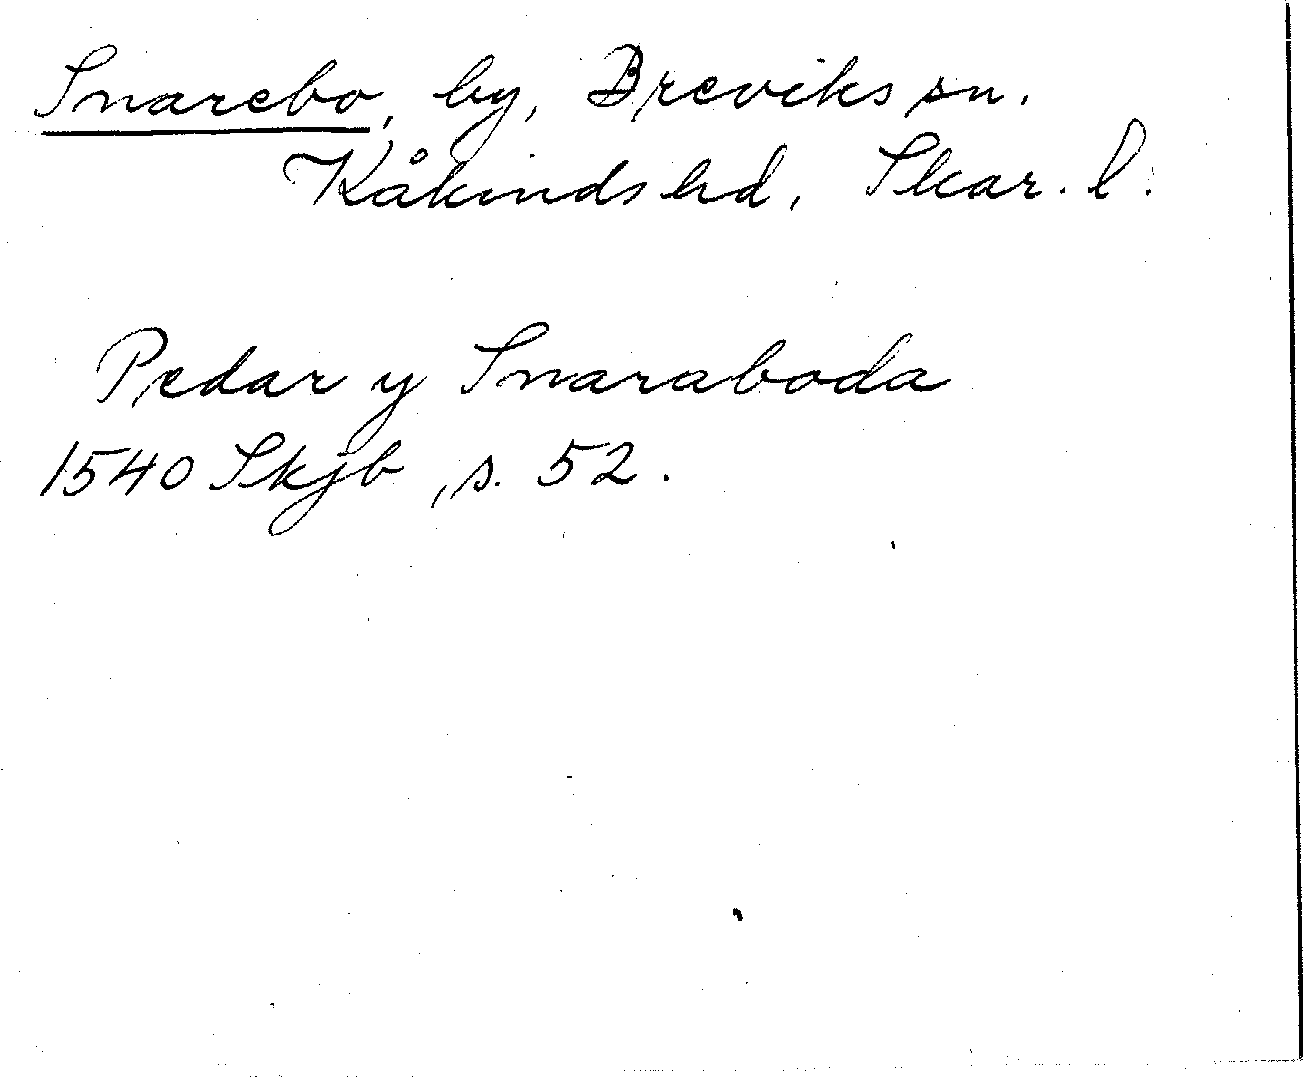 Snarebo, by, Breviks sn.
Kåkinds hd, Skar. l.
Pedar y Snaraboda
1540 Skjb, s. 52.